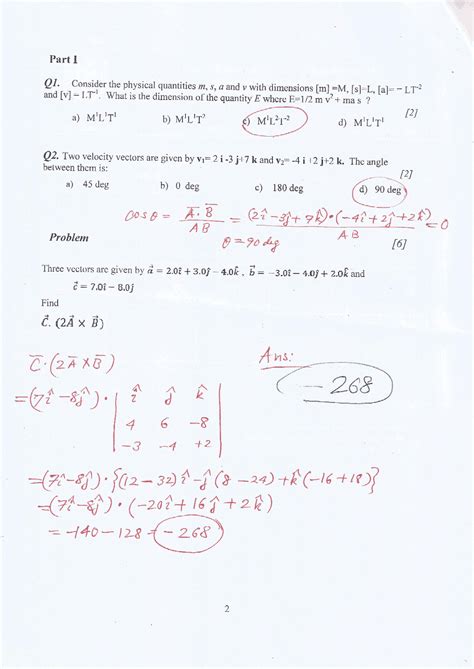 Part I
Q1. Consider the physical quantities m, s, a and v with dimensions [m] =M, [s]=L, [a]= = LT⁻²
and [v] = LT⁻¹. What is the dimension of the quantity E where E=1/2 m v² + ma s ?
[2]
a) M¹L¹T¹ b) M¹L¹T² c) M¹L²T⁻² d) M¹L¹T¹
Q2. Two velocity vectors are given by v₁= 2 i -3 j+7 k and v₂= -4 i +2 j+2 k. The angle
between them is:
[2]
a) 45 deg b) 0 deg c) 180 deg d) 90 deg
cos θ = A̅ . B̅ / AB = (2î - 3ĵ + 7k̂)•(-4î + 2ĵ + 2k̂) / AB = 0
θ = 90 deg
Problem [6]
Three vectors are given by a⃗ = 2.0î + 3.0ĵ - 4.0k̂ , b⃗ = -3.0î - 4.0ĵ + 2.0k̂ and
c⃗ = 7.0î - 8.0ĵ
Find
C⃗. (2A⃗ × B⃗)
C̅ . (2A̅ × B̅)
Ans:
-268
= (7î - 8ĵ) • | î ĵ k̂
4 6 -8
-3 -4 +2 |
= (7î - 8ĵ) • {(12 - 32)î - ĵ(8 - 24) + k̂(-16 + 18)}
= (7î - 8ĵ) • (-20î + 16ĵ + 2k̂)
= -140 - 128 = -268
2